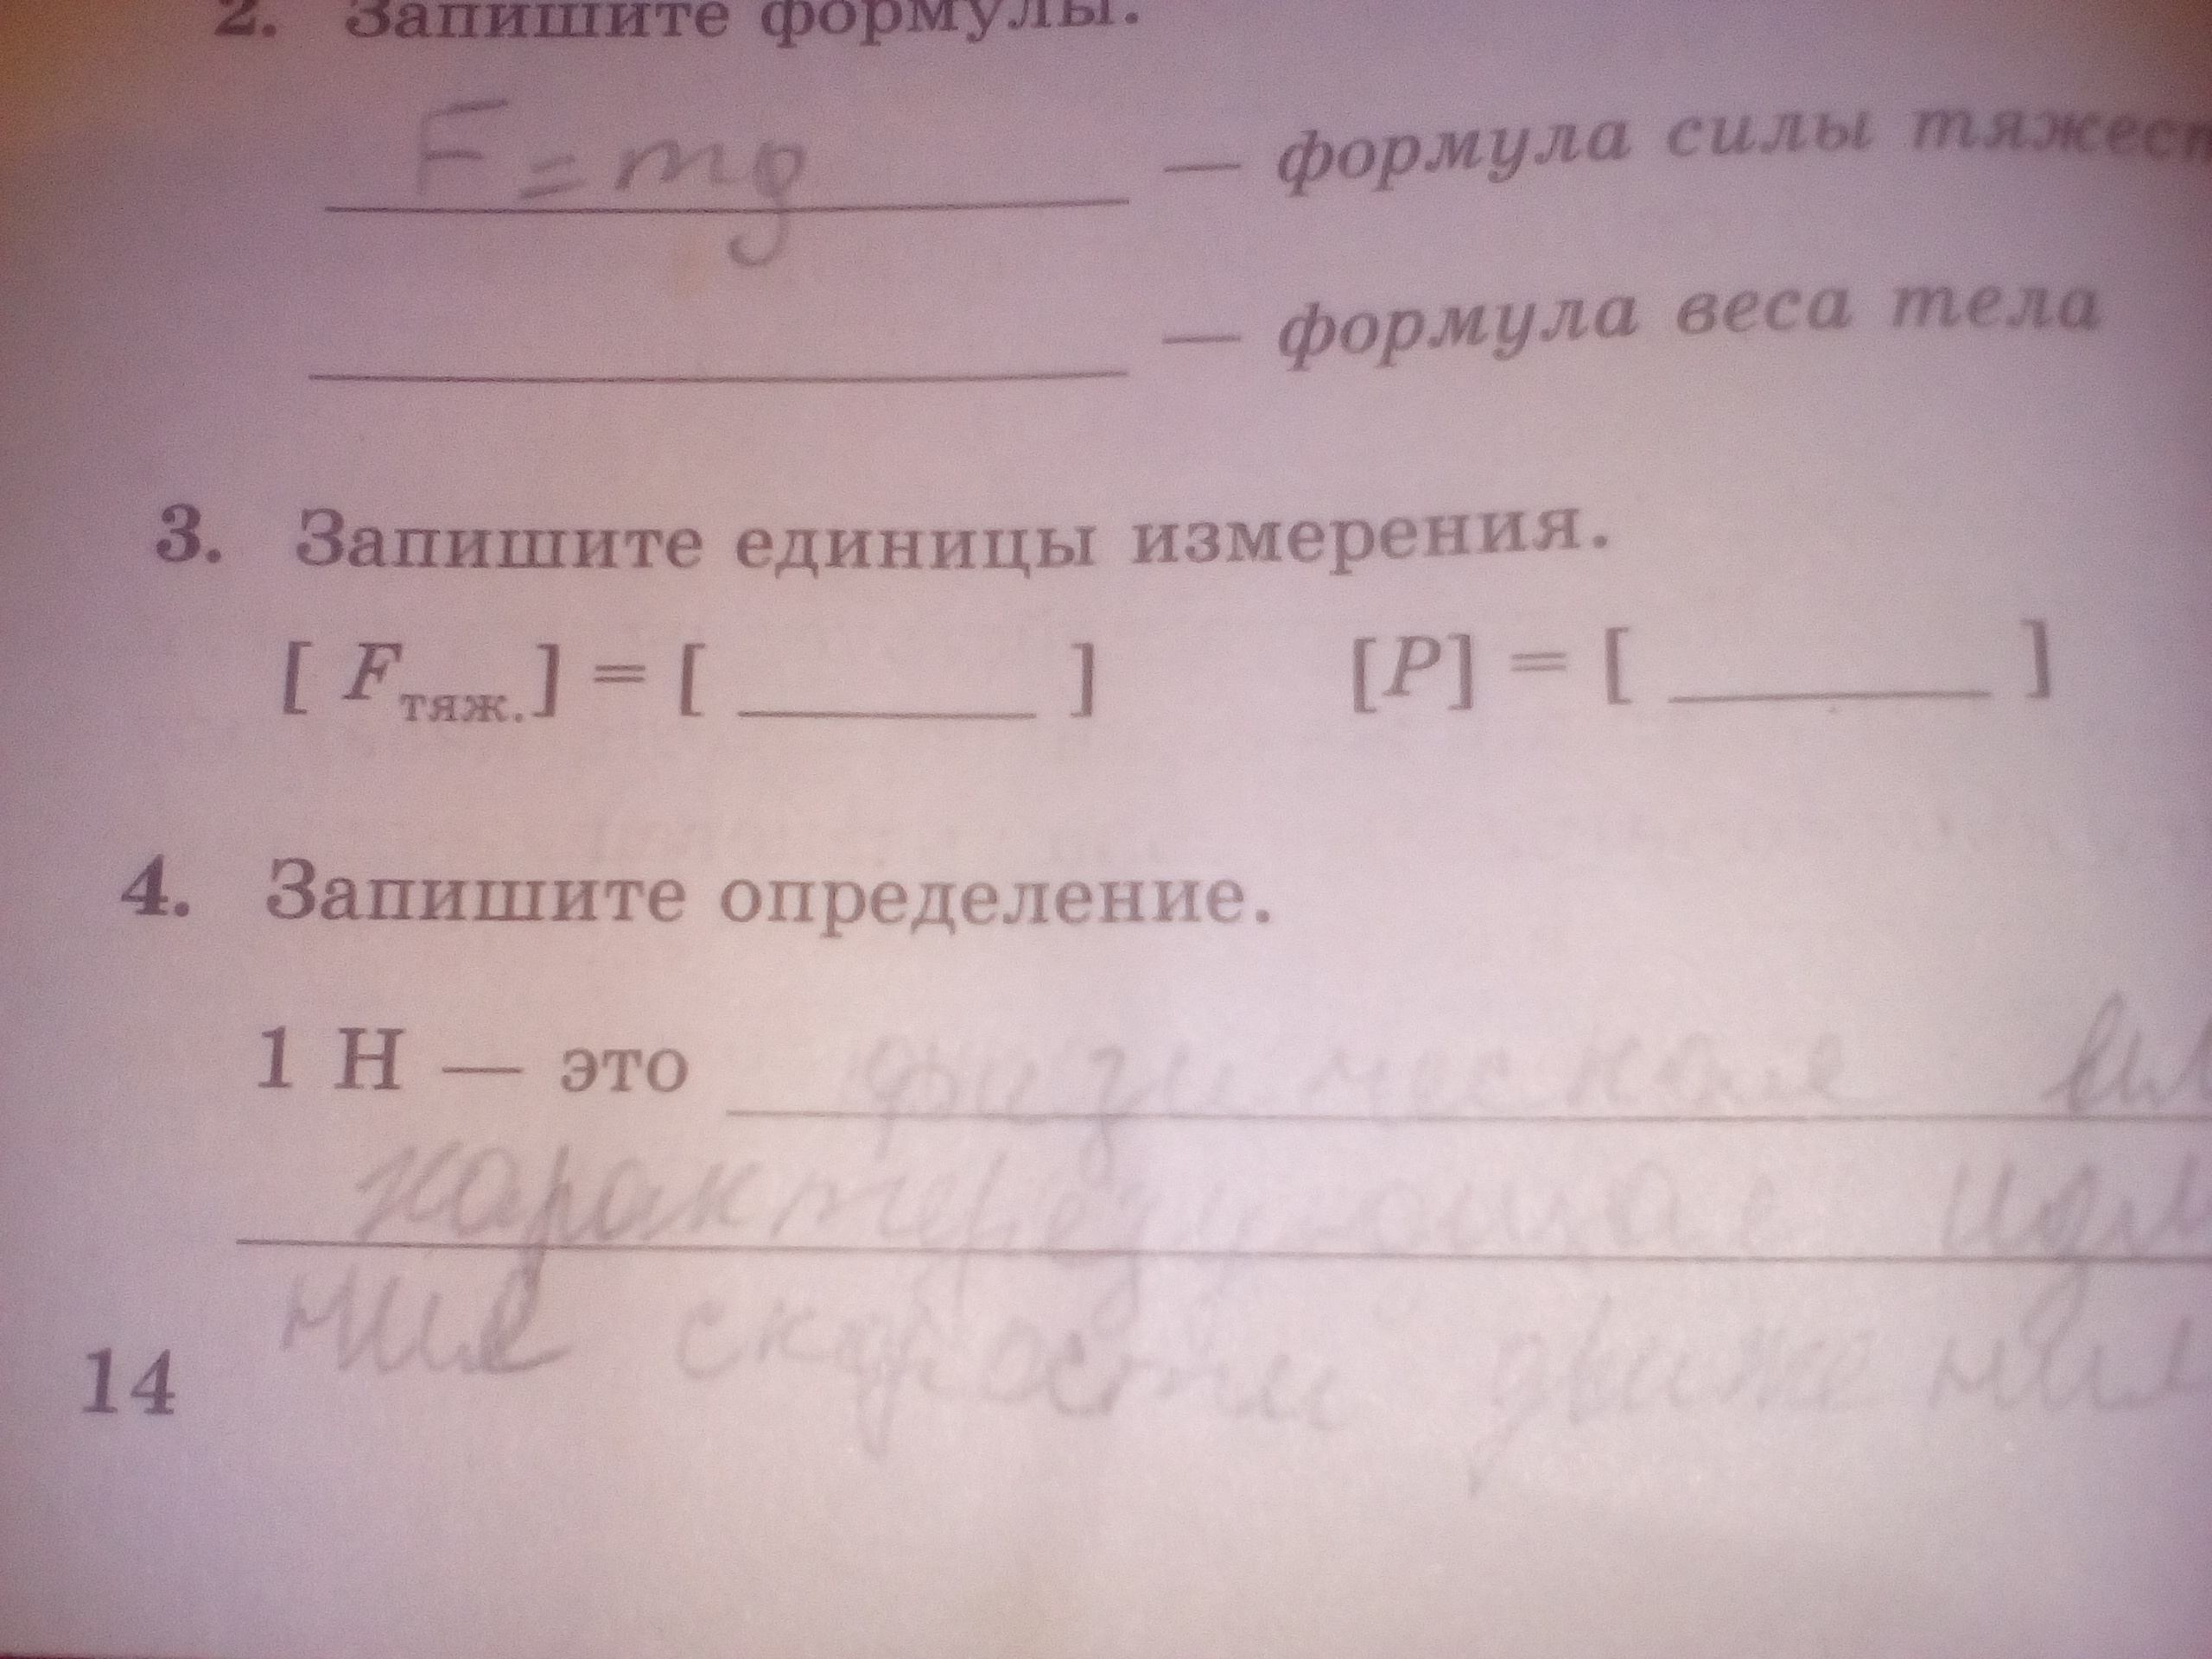 2. Запишите формулы.
F = mg — формула силы тяжест
— формула веса тела
3. Запишите единицы измерения.
[ Fтяж. ] = [ ______ ] [P] = [ ______ ]
4. Запишите определение.
1 Н — это физическая
характеризующая
ние скорости движения
14